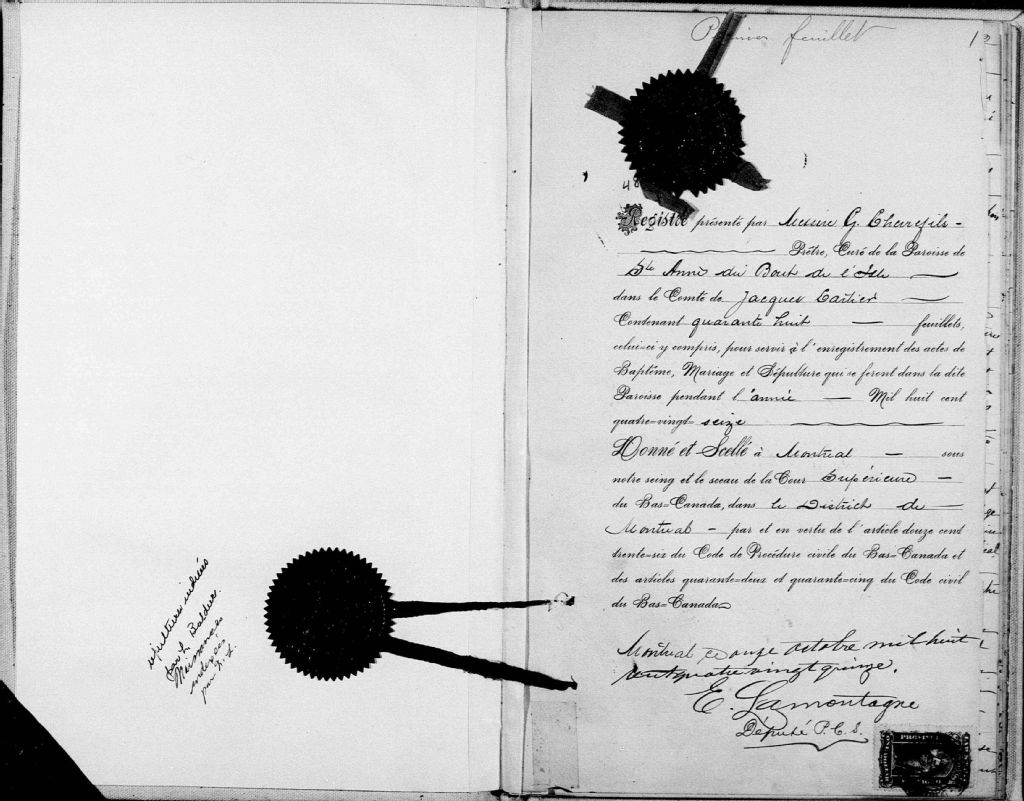 Premier feuillet
1
48
Registre présenté par Messire G. Chevrefils -
Prêtre, Curé de la Paroisse de
Ste Anne du Bout de l'Isle
dans le Comté de Jacques Cartier
Contenant quarante huit — feuillets,
celui=ci y compris, pour servir à l'enregistrement des actes de
Baptême, Mariage et Sépulture qui se feront dans la dite
Paroisse pendant l'année — Mil huit cent
quatre=vingt= seize
Donné et Scellé à Montreal — sous
notre seing et le sceau de la Cour Supérieure —
du Bas=Canada, dans le District de —
Montreal — par et en vertu de l'article douze cent
trente=six du Code de Procédure civile du Bas=Canada et
des articles quarante=deux et quarante=cinq du Code civil
du Bas=Canada
Montreal ce onze octobre mil huit
cent quatre vingt quinze.
E. Lamontagne
Député P.C.S.
sépultures
Naissances
indexées
par